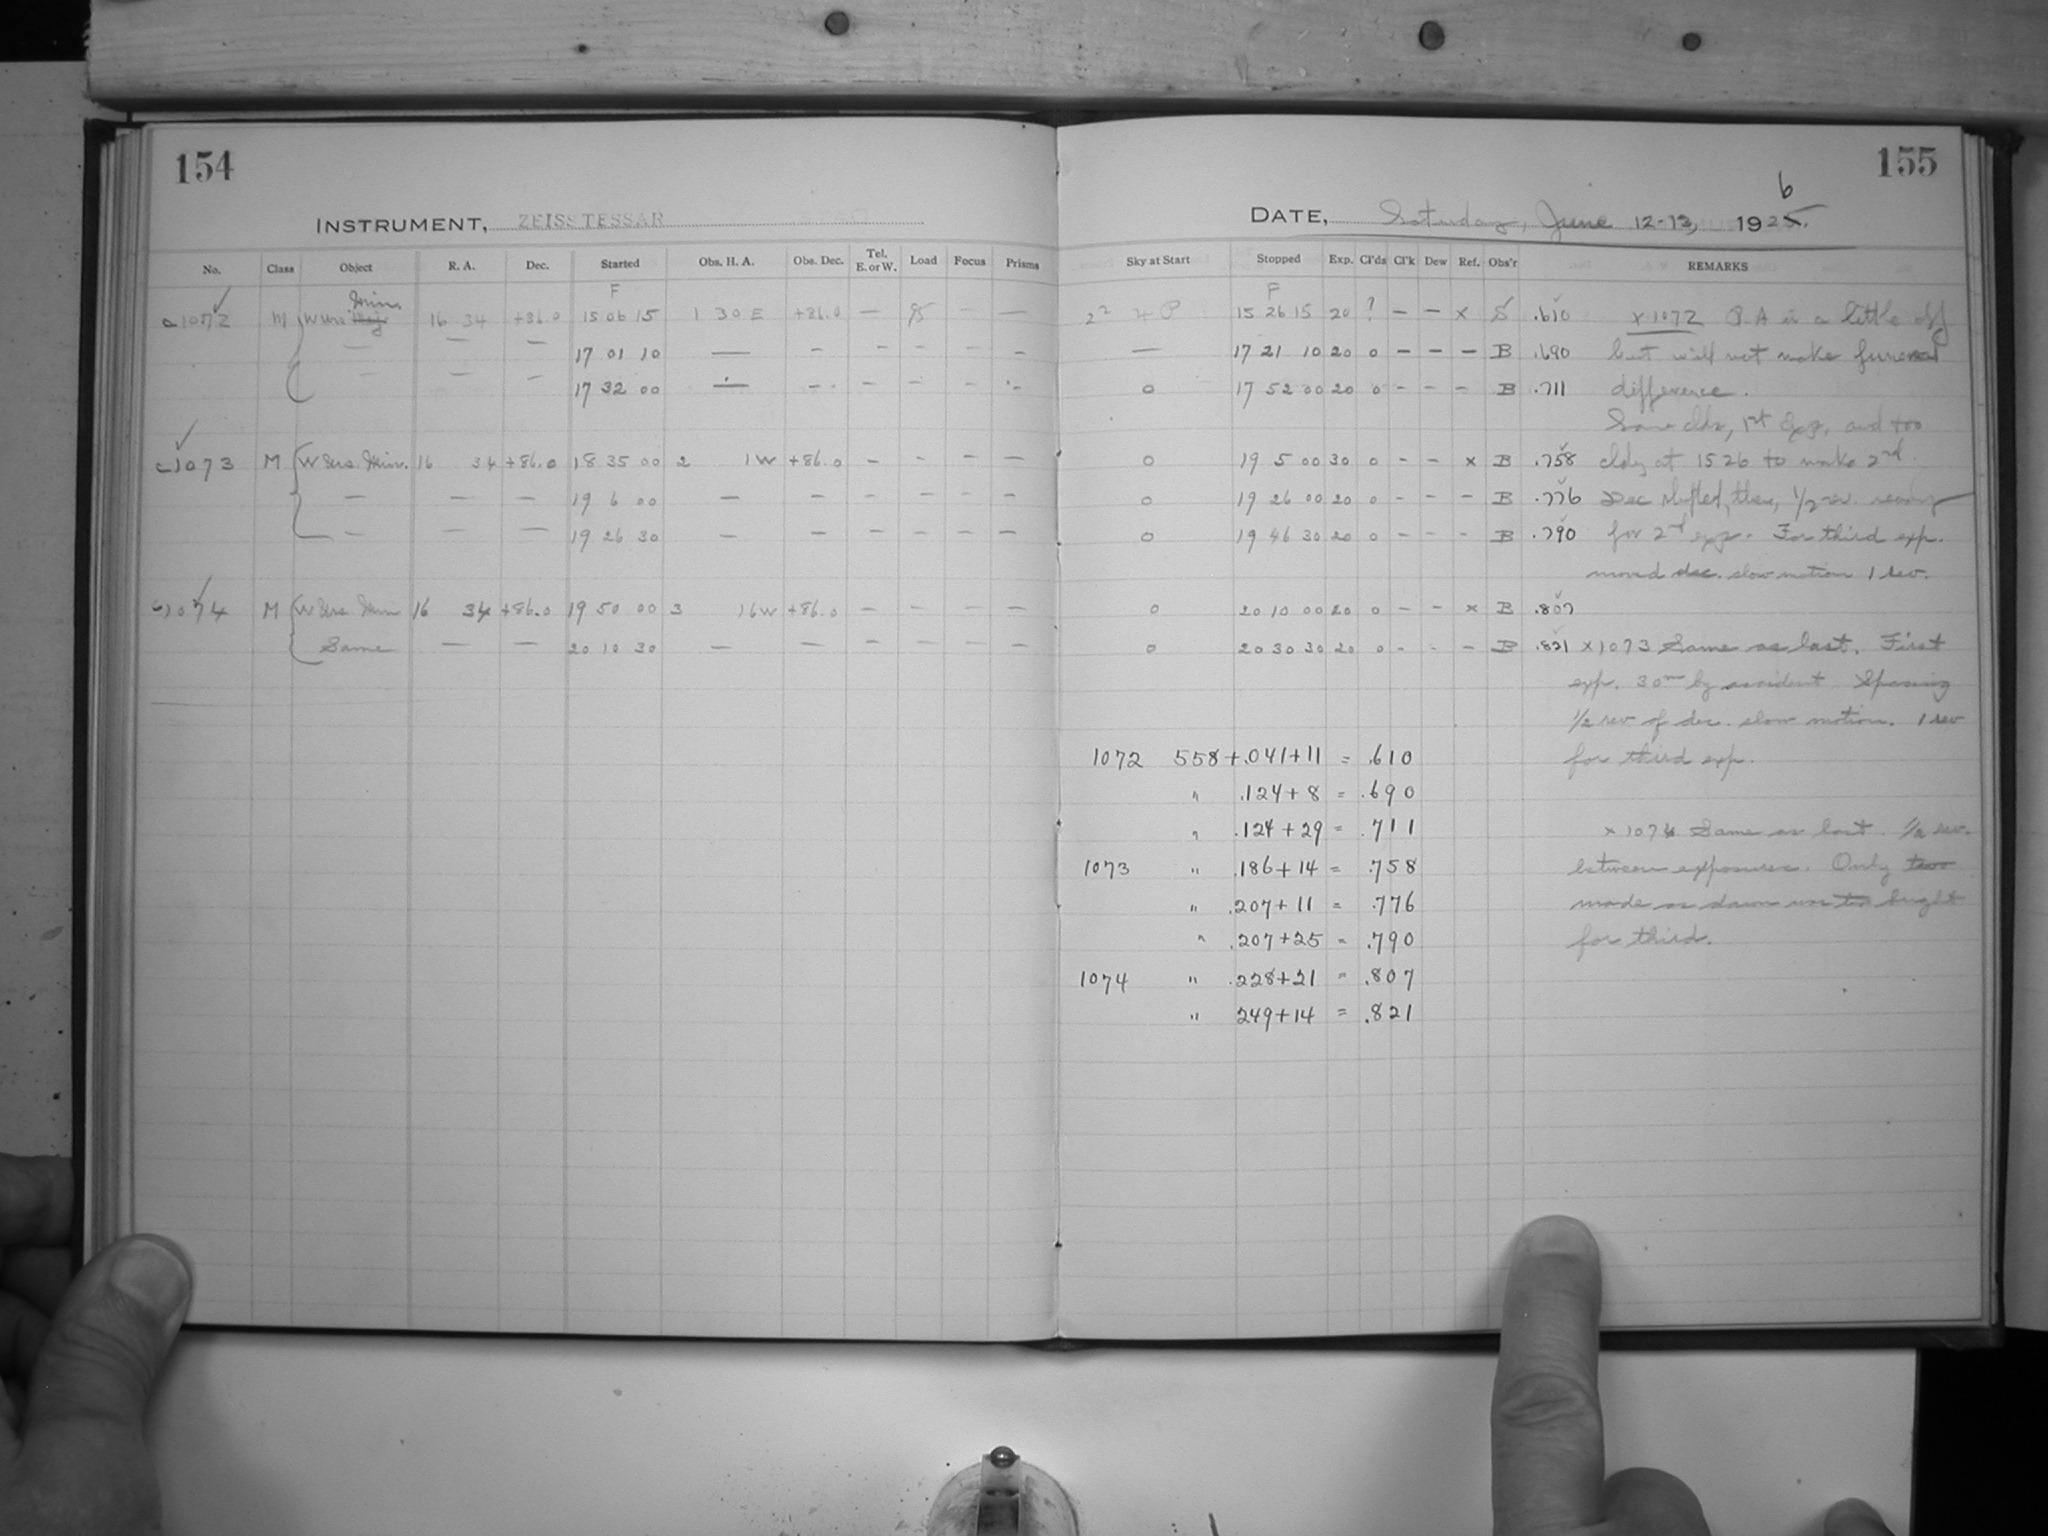 154
INSTRUMENT, ZEISS TESSAR
No. Class Object R. A. Dec. Started Obs. H. A. Obs. Dec. Tel. E. or W. Load Focus Prisms
F
Min.
c1072 M W Urs Maj 16 34 +86.0 15 06 15 1 30 E +86.0 — — —
— — — 17 01 10 — — — — — —
— — — 17 32 00 — — — — — —
c1073 M W Urs. Min. 16 34 +86.0 18 35 00 2 1 W +86.0 — — — —
— — — 19 6 00 — — — — — —
— — — 19 26 30 — — — — — —
c1074 M W Urs. Min 16 34 +86.0 19 50 00 3 16 W +86.0 — — — —
Same — — 20 10 30 — — — — — —
155
6
DATE, Saturday, June 12-13, 1925.
Sky at Start Stopped Exp. Cl'ds Cl'k Dew Ref. Obs'r REMARKS
F
15 26 15 20 ? — — x S .610 x 1072 P A is a little off
— 17 21 10 20 0 — — — B .690 but will not make
0 17 52 00 20 0 - - - B .711 difference.
Some clds, 1st Exp. and too
0 19 5 00 30 0 - - x B .758 cldy at 15 26 to make 2nd.
0 19 26 00 20 0 - - - B .776 Dec shifted, then, 1/2 rev. ready
0 19 46 30 20 0 - - - B .790 for 2nd exp. For third exp.
moved dec. slow motion 1 rev.
0 20 10 00 20 0 - - x B .807
0 20 30 30 20 0 - - - B .821 x 1073 Same as last. First
exp. 30m by accident Spacing
1/2 rev of dec. slow motion. 1 rev
for third exp.
1072 558+.041+11 = .610
" .124+8 = .690
" .124+29 = .711
1073 " .186+14 = .758
" .207+11 = .776
" .207+25 = .790
1074 " .228+21 = .807
" 249+14 = .821
x 1074 Same as last. 1/2 rev.
between exposures. Only two
made as dawn was too bright
for third.